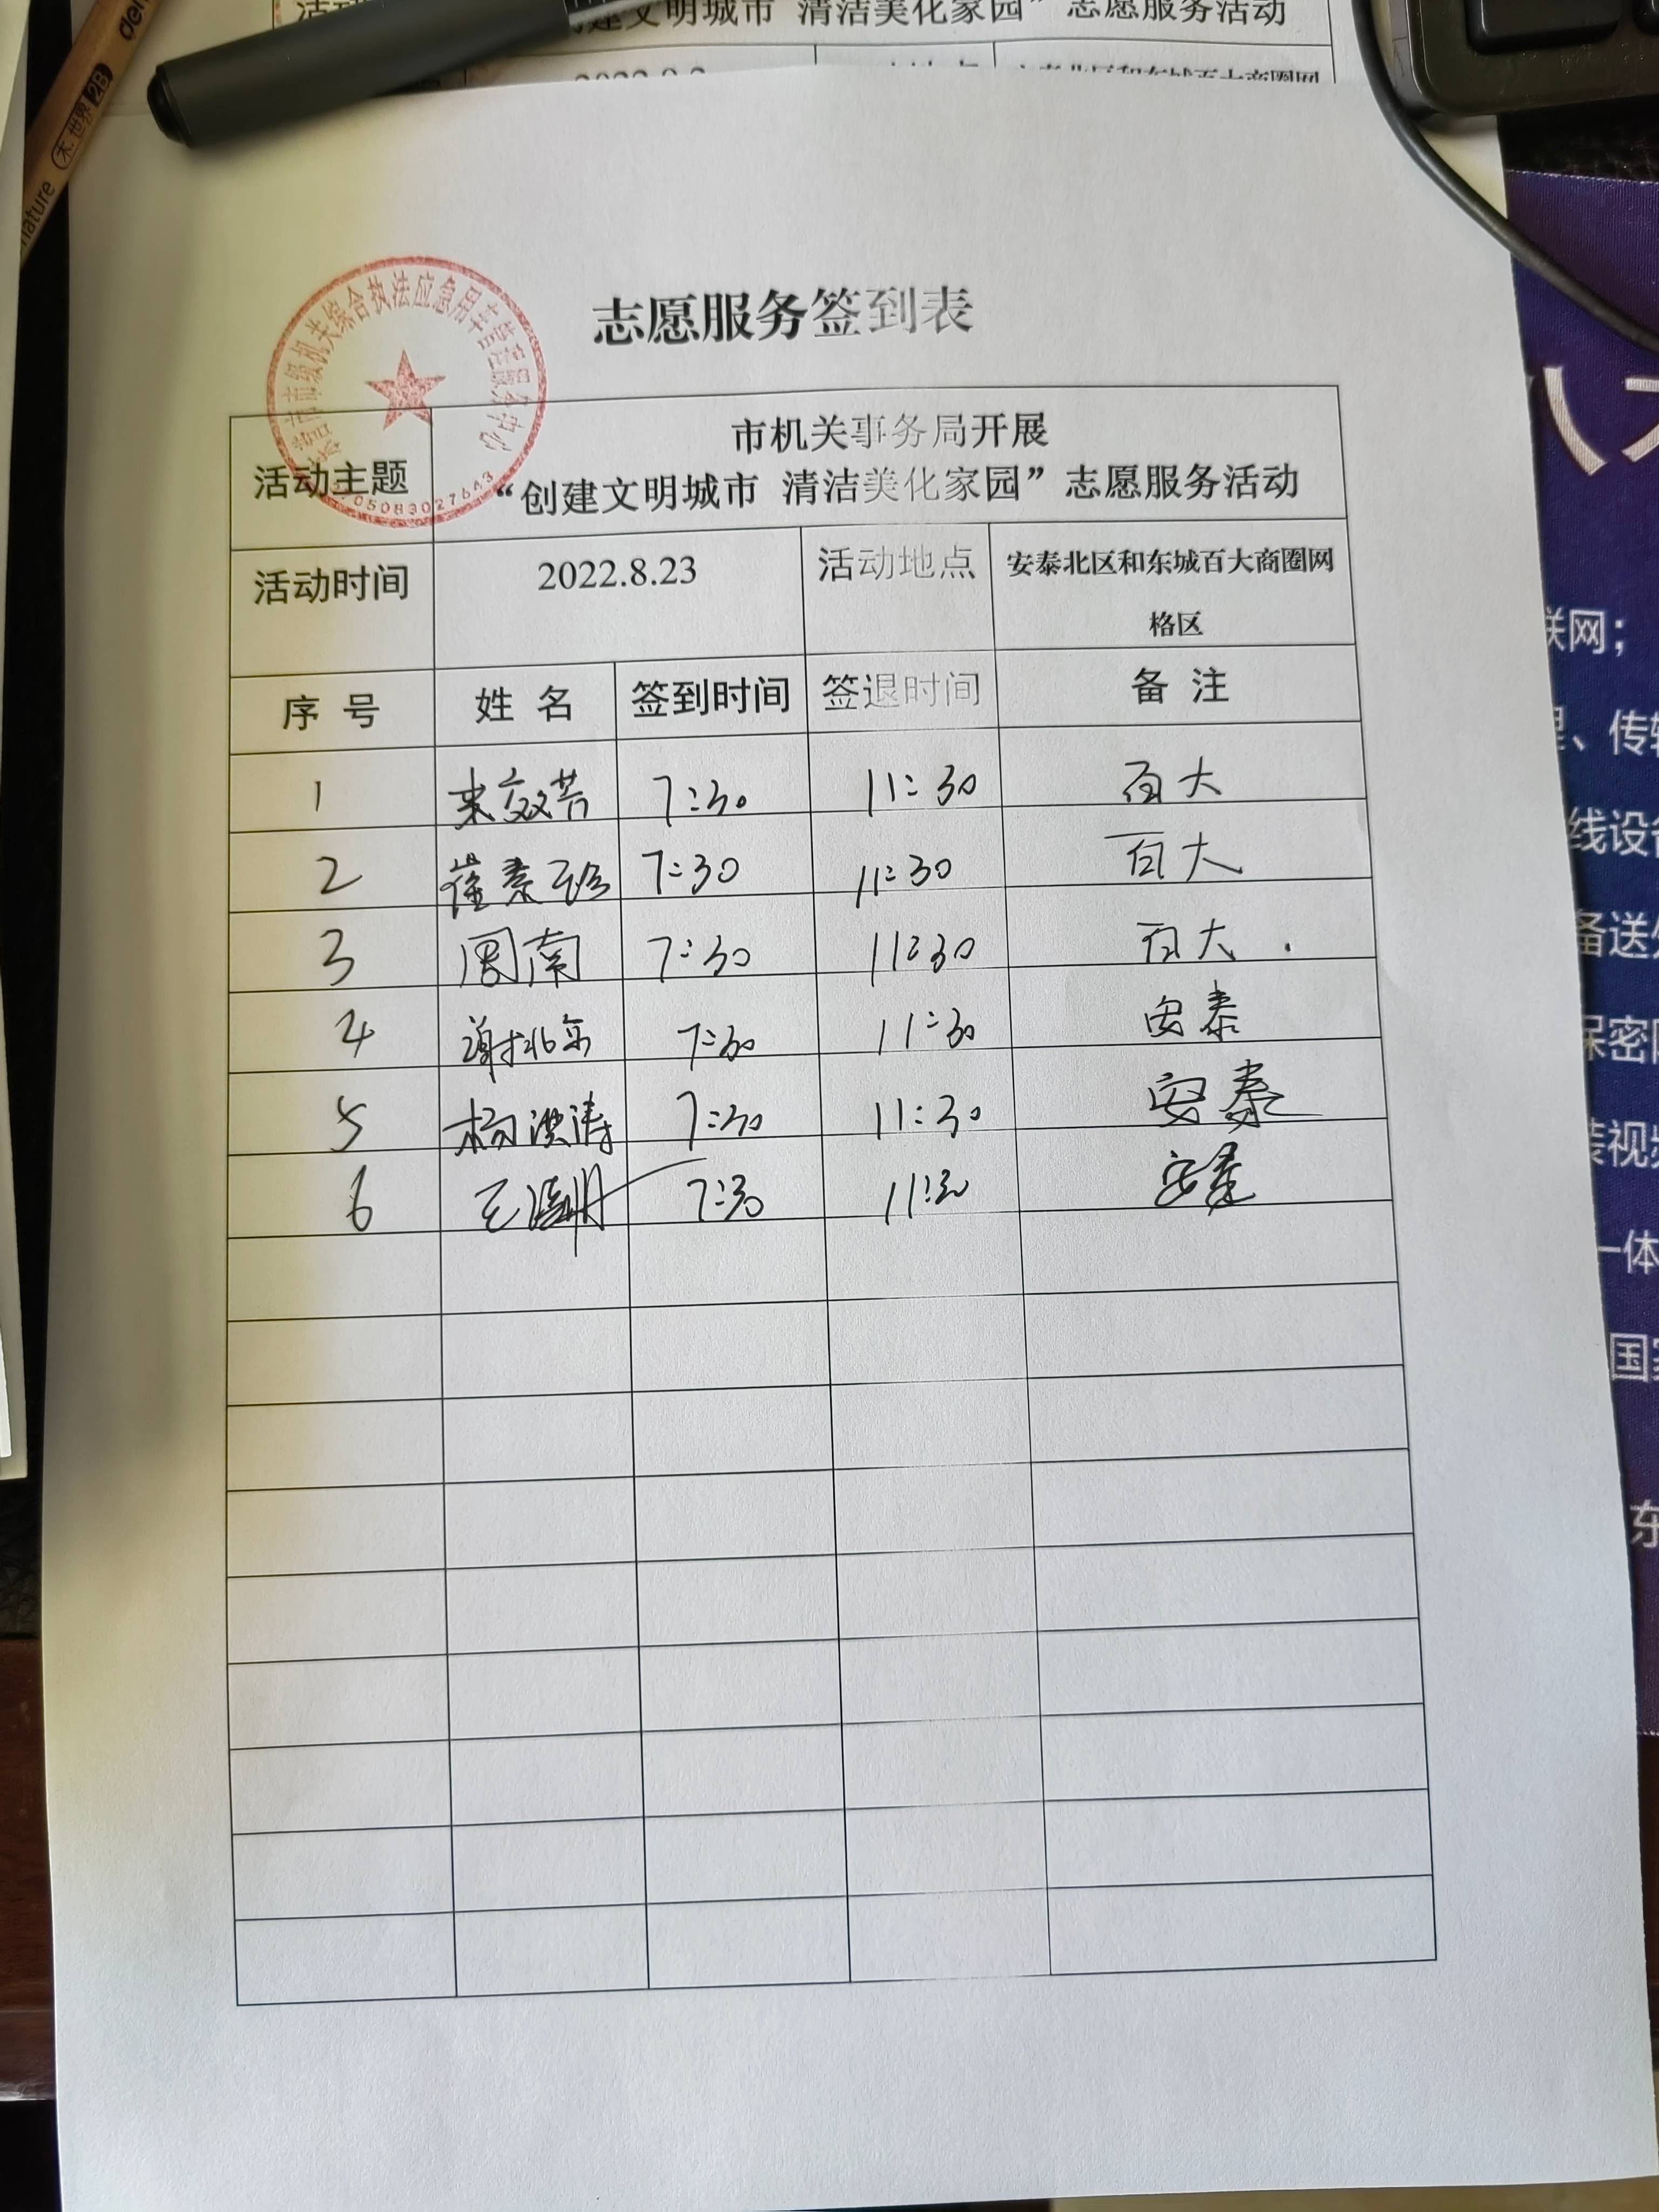 创建文明城市 清洁美化家园”志愿服务活动
木.世界 2B
nature
志愿服务签到表
市级机关综合执法应急用车管理服务中心
05083027643
活动主题
市机关事务局开展
“创建文明城市 清洁美化家园”志愿服务活动
活动时间 2022.8.23 活动地点 安泰北区和东城百大商圈网
格区
序 号 姓 名 签到时间 签退时间 备 注
1 7:30 11:30 百大
2 7:30 11:30 百大
3 周南 7:30 11:30 百大
4 7:30 11:30 安泰
5 杨洪涛 7:30 11:30 安泰
6 7:30 11:30 安泰
联网；
、传输
线设备
备送
保密
视频
一体
国家
东